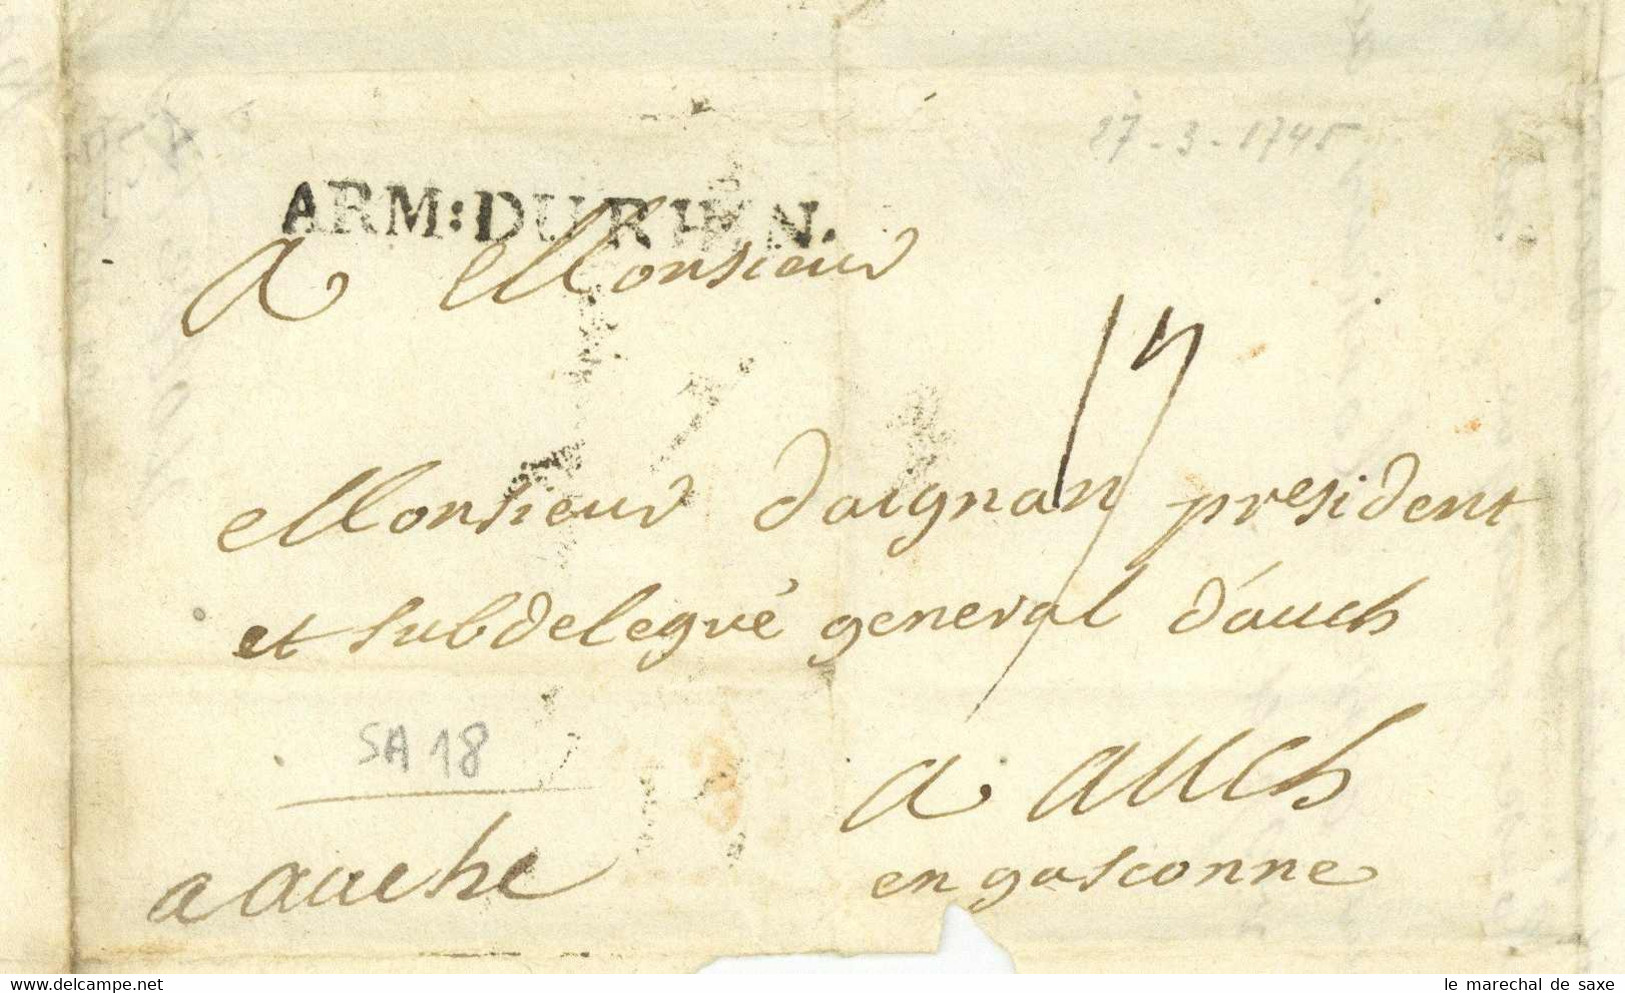 27-3-1745
ARM: DU RHIN.
A Monsieur
17
Monsieur daignan president
et subdelegué general d'auch
SA 18
a auch
a auche
en gasconne
www.delcampe.net
le marechal de saxe